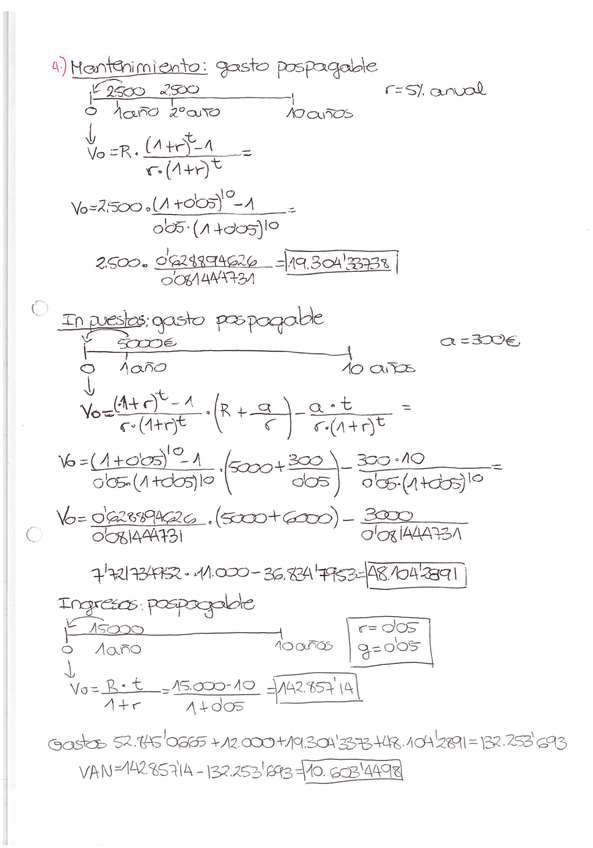 4.) Mantenimiento: gasto pospagable
2500 2500 r=5% anual
0 1año 2º año 10 años
Vo=R·(1+r)^t-1/r·(1+r)^t=
Vo=2.500·(1+0'05)^10-1/0'05·(1+0'05)^10=
2.500·0'628894626/0'081444731=19.304'33738
Inpuestos: gasto pospagable
5000€ a=300€
0 1año 10 años
Vo=(1+r)^t-1/r·(1+r)^t·(R+a/r)-a·t/r·(1+r)^t=
Vo=(1+0'05)^10-1/0'05·(1+0'05)^10·(5000+300/0'05)-300·10/0'05·(1+0'05)^10=
Vo=0'628894626/0'081444731·(5000+6000)-3000/0'081444731
7'721734952·11.000-36.834'7953=48.104'2891
Ingresos: pospagable
15000 r=0'05
0 1año 10 años g=0'05
Vo=R·t/1+r=15.000·10/1+0'05=142.857'14
Gastos 52.845'0665+12.000+19.304'3373+48.104'2891=132.253'693
VAN=142.857'14-132.253'693=10.603'4498